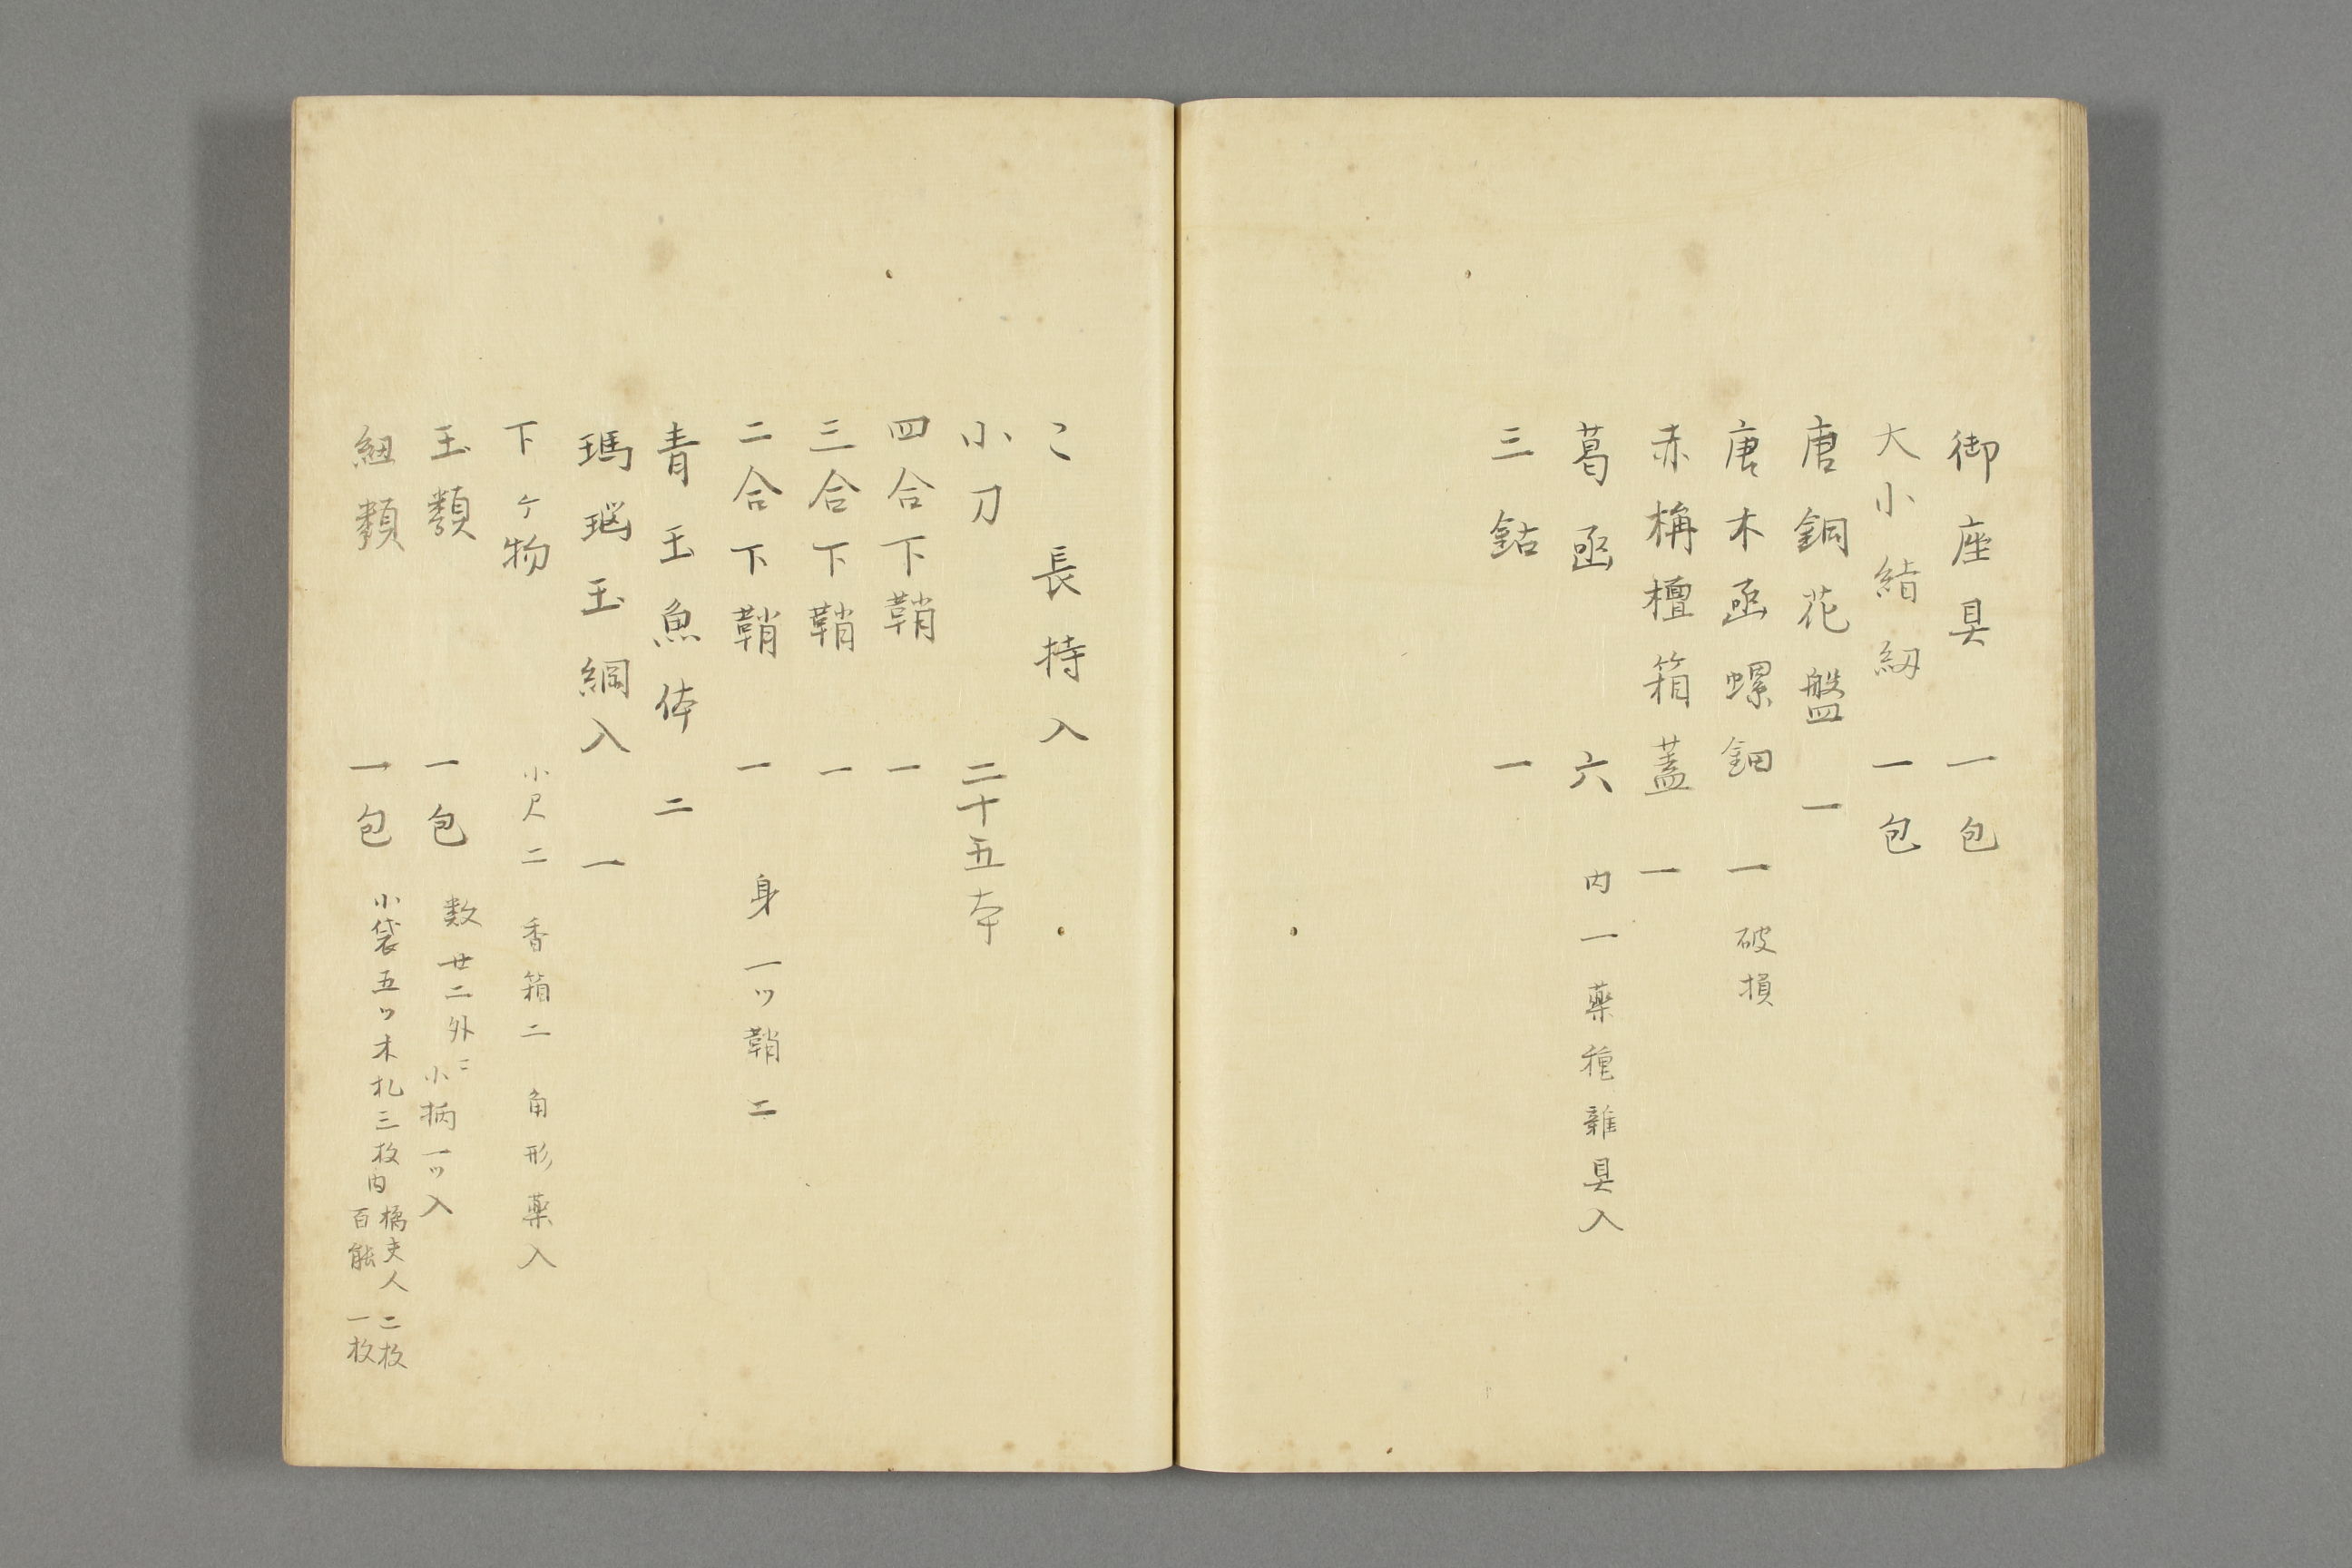 御座具 一包
大小結紐 一包
唐銅花盤 一
唐木函螺鈿 一 破損
赤栴檀箱蓋 一
葛函 六 内一薬種雑具入
三鈷 一
こ 長持入
小刀 二十五本
四合下鞘 一
三合下鞘 一
二合下鞘 一 身一ッ鞘二
青玉魚体 二
瑪瑙玉綱入 一
下ヶ物 小尺二 香箱二 角形薬入
玉類 一包 数廿二外ニ小柄一ッ入
紐類 一包 小袋五ッ木札三枚内 橘夫人 二枚
百能 一枚